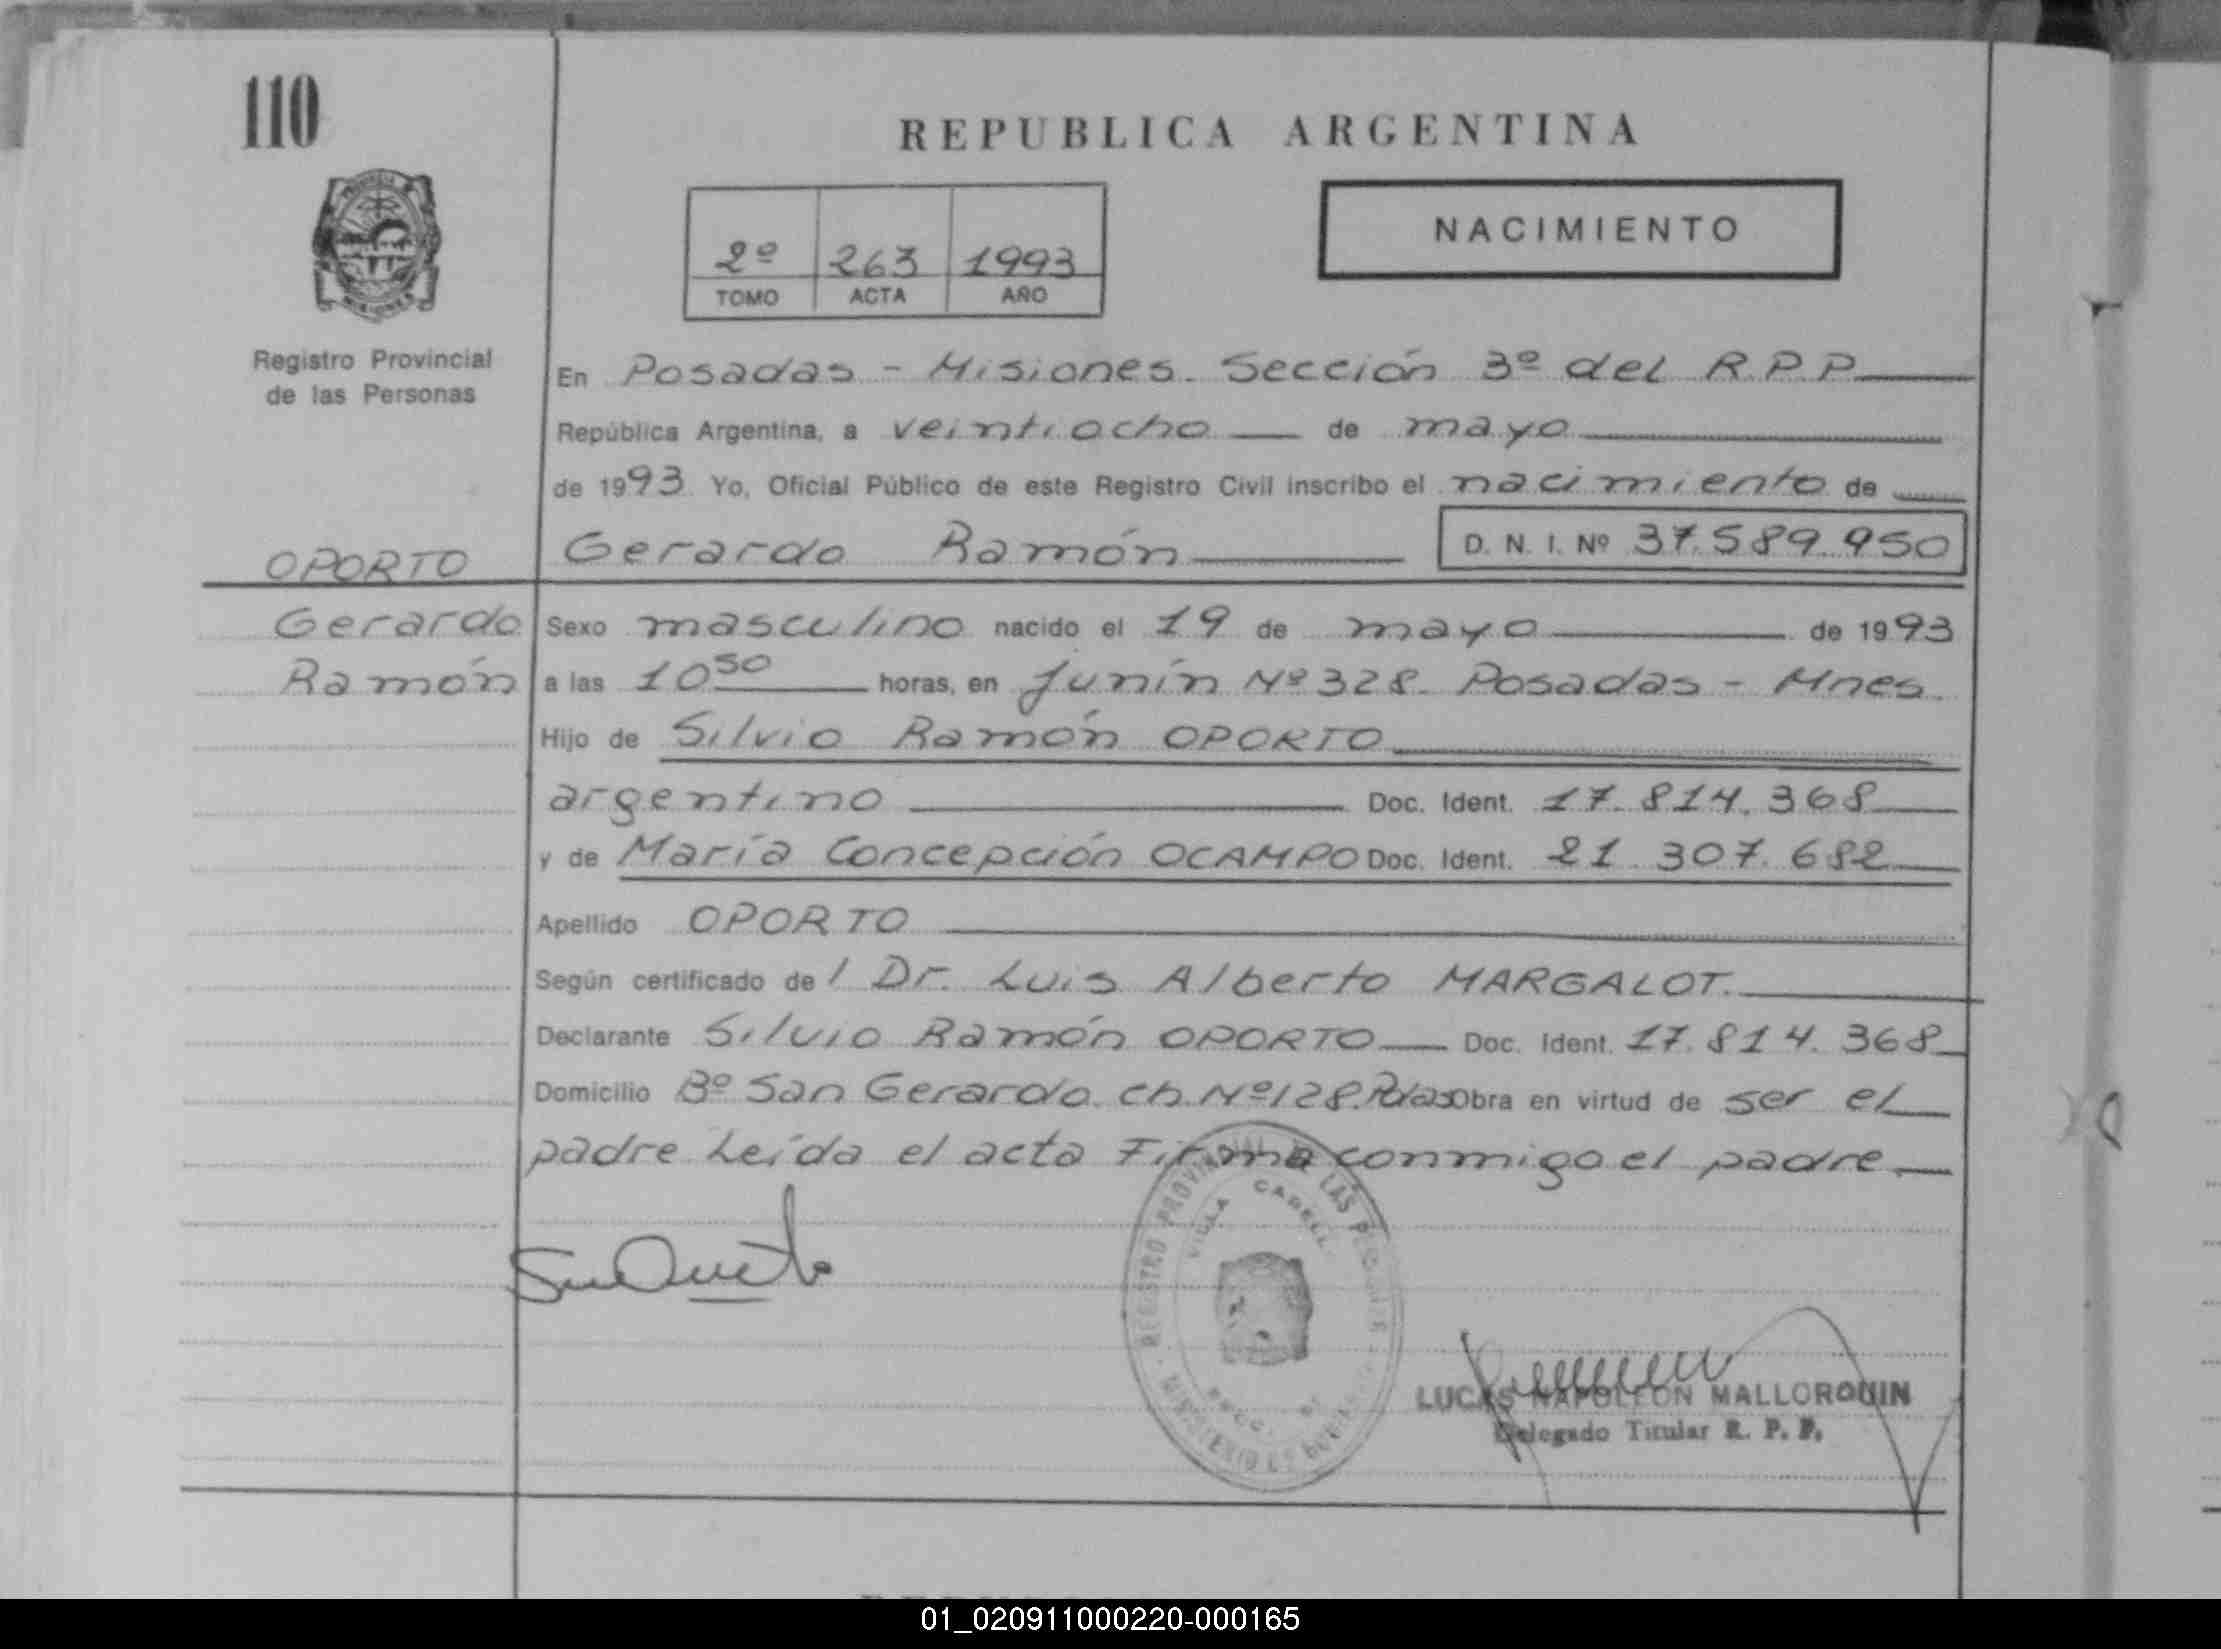 110
REPUBLICA ARGENTINA
NACIMIENTO
2º 263 1993
TOMO ACTA AÑO
Registro Provincial
de las Personas
En Posadas - Misiones. Sección 3º del R.P.P.
República Argentina, a veintiocho de mayo
de 1993 Yo, Oficial Público de este Registro Civil inscribo el nacimiento de
OPORTO
Gerardo Ramón D. N. I. Nº 37.589.950
Gerardo
Ramón
Sexo masculino nacido el 19 de mayo de 1993
a las 10 50 horas, en Junín Nº 328. Posadas - Mnes.
Hijo de Silvio Ramón OPORTO
argentino Doc. Ident. 17.814.368
y de María Concepción OCAMPO Doc. Ident. 21.307.682
Apellido OPORTO
Según certificado del Dr. Luis Alberto MARGALOT.
Declarante Silvio Ramón OPORTO Doc. Ident. 17.814.368
Domicilio Bº San Gerardo. Ch. Nº 128. Pdas Obra en virtud de ser el
padre. Leída el acta Firma conmigo el padre.
REGISTRO PROVINCIAL DE LAS PERSONAS
VILLA CABELL
LUCAS NAPOLEON MALLORQUIN
Delegado Titular R. P. P.
01_020911000220-000165